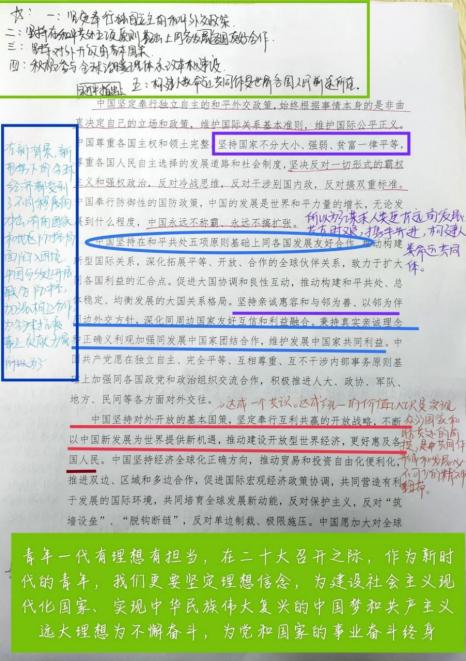 一：坚定奉行独立自主的和平外交政策
二：坚持在和平共处五项原则基础上同各国发展友好合作。
三：坚持对外开放的基本国策
四：积极参与全球治理体系改革和建设
五：构建人类命运共同体是世界各国人民前途所在
中国坚定奉行独立自主的和平外交政策，始终根据事情本身的是非曲
直决定自己的立场和政策，维护国际关系基本准则，维护国际公平正义。
中国尊重各国主权和领土完整，坚持国家不分大小、强弱、贫富一律平等，
尊重各国人民自主选择的发展道路和社会制度，坚决反对一切形式的霸权
主义和强权政治，反对冷战思维，反对干涉别国内政，反对搞双重标准。
中国奉行防御性的国防政策，中国的发展是世界和平力量的增长，无论发
展到什么程度，中国永远不称霸、永远不搞扩张。
中国坚持在和平共处五项原则基础上同各国发展友好合作，推动构建
新型国际关系，深化拓展平等、开放、合作的全球伙伴关系，致力于扩大
同各国利益的汇合点。促进大国协调和良性互动，推动构建和平共处、总
体稳定、均衡发展的大国关系格局。坚持亲诚惠容和与邻为善、以邻为伴
周边外交方针，深化同周边国家友好互信和利益融合。秉持真实亲诚理念
和正确义利观加强同发展中国家团结合作，维护发展中国家共同利益。中
国共产党愿在独立自主、完全平等、互相尊重、互不干涉内部事务原则基
础上加强同各国政党和政治组织交流合作，积极推进人大、政协、军队、
地方、民间等各方面对外交往。
中国坚持对外开放的基本国策，坚定奉行互利共赢的开放战略，不断
以中国新发展为世界提供新机遇，推动建设开放型世界经济，更好惠及各
国人民。中国坚持经济全球化正确方向，推动贸易和投资自由化便利化，
推进双边、区域和多边合作，促进国际宏观经济政策协调，共同营造有利
于发展的国际环境，共同培育全球发展新动能，反对保护主义，反对“筑
墙设垒”、“脱钩断链”，反对单边制裁、极限施压。中国愿加大对全球
青年一代有理想有担当，在二十大召开之际，作为新时
代的青年，我们更要坚定理想信念，为建设社会主义现
代化国家、实现中华民族伟大复兴的中国梦和共产主义
远大理想为不懈奋斗，为党和国家的事业奋斗终身